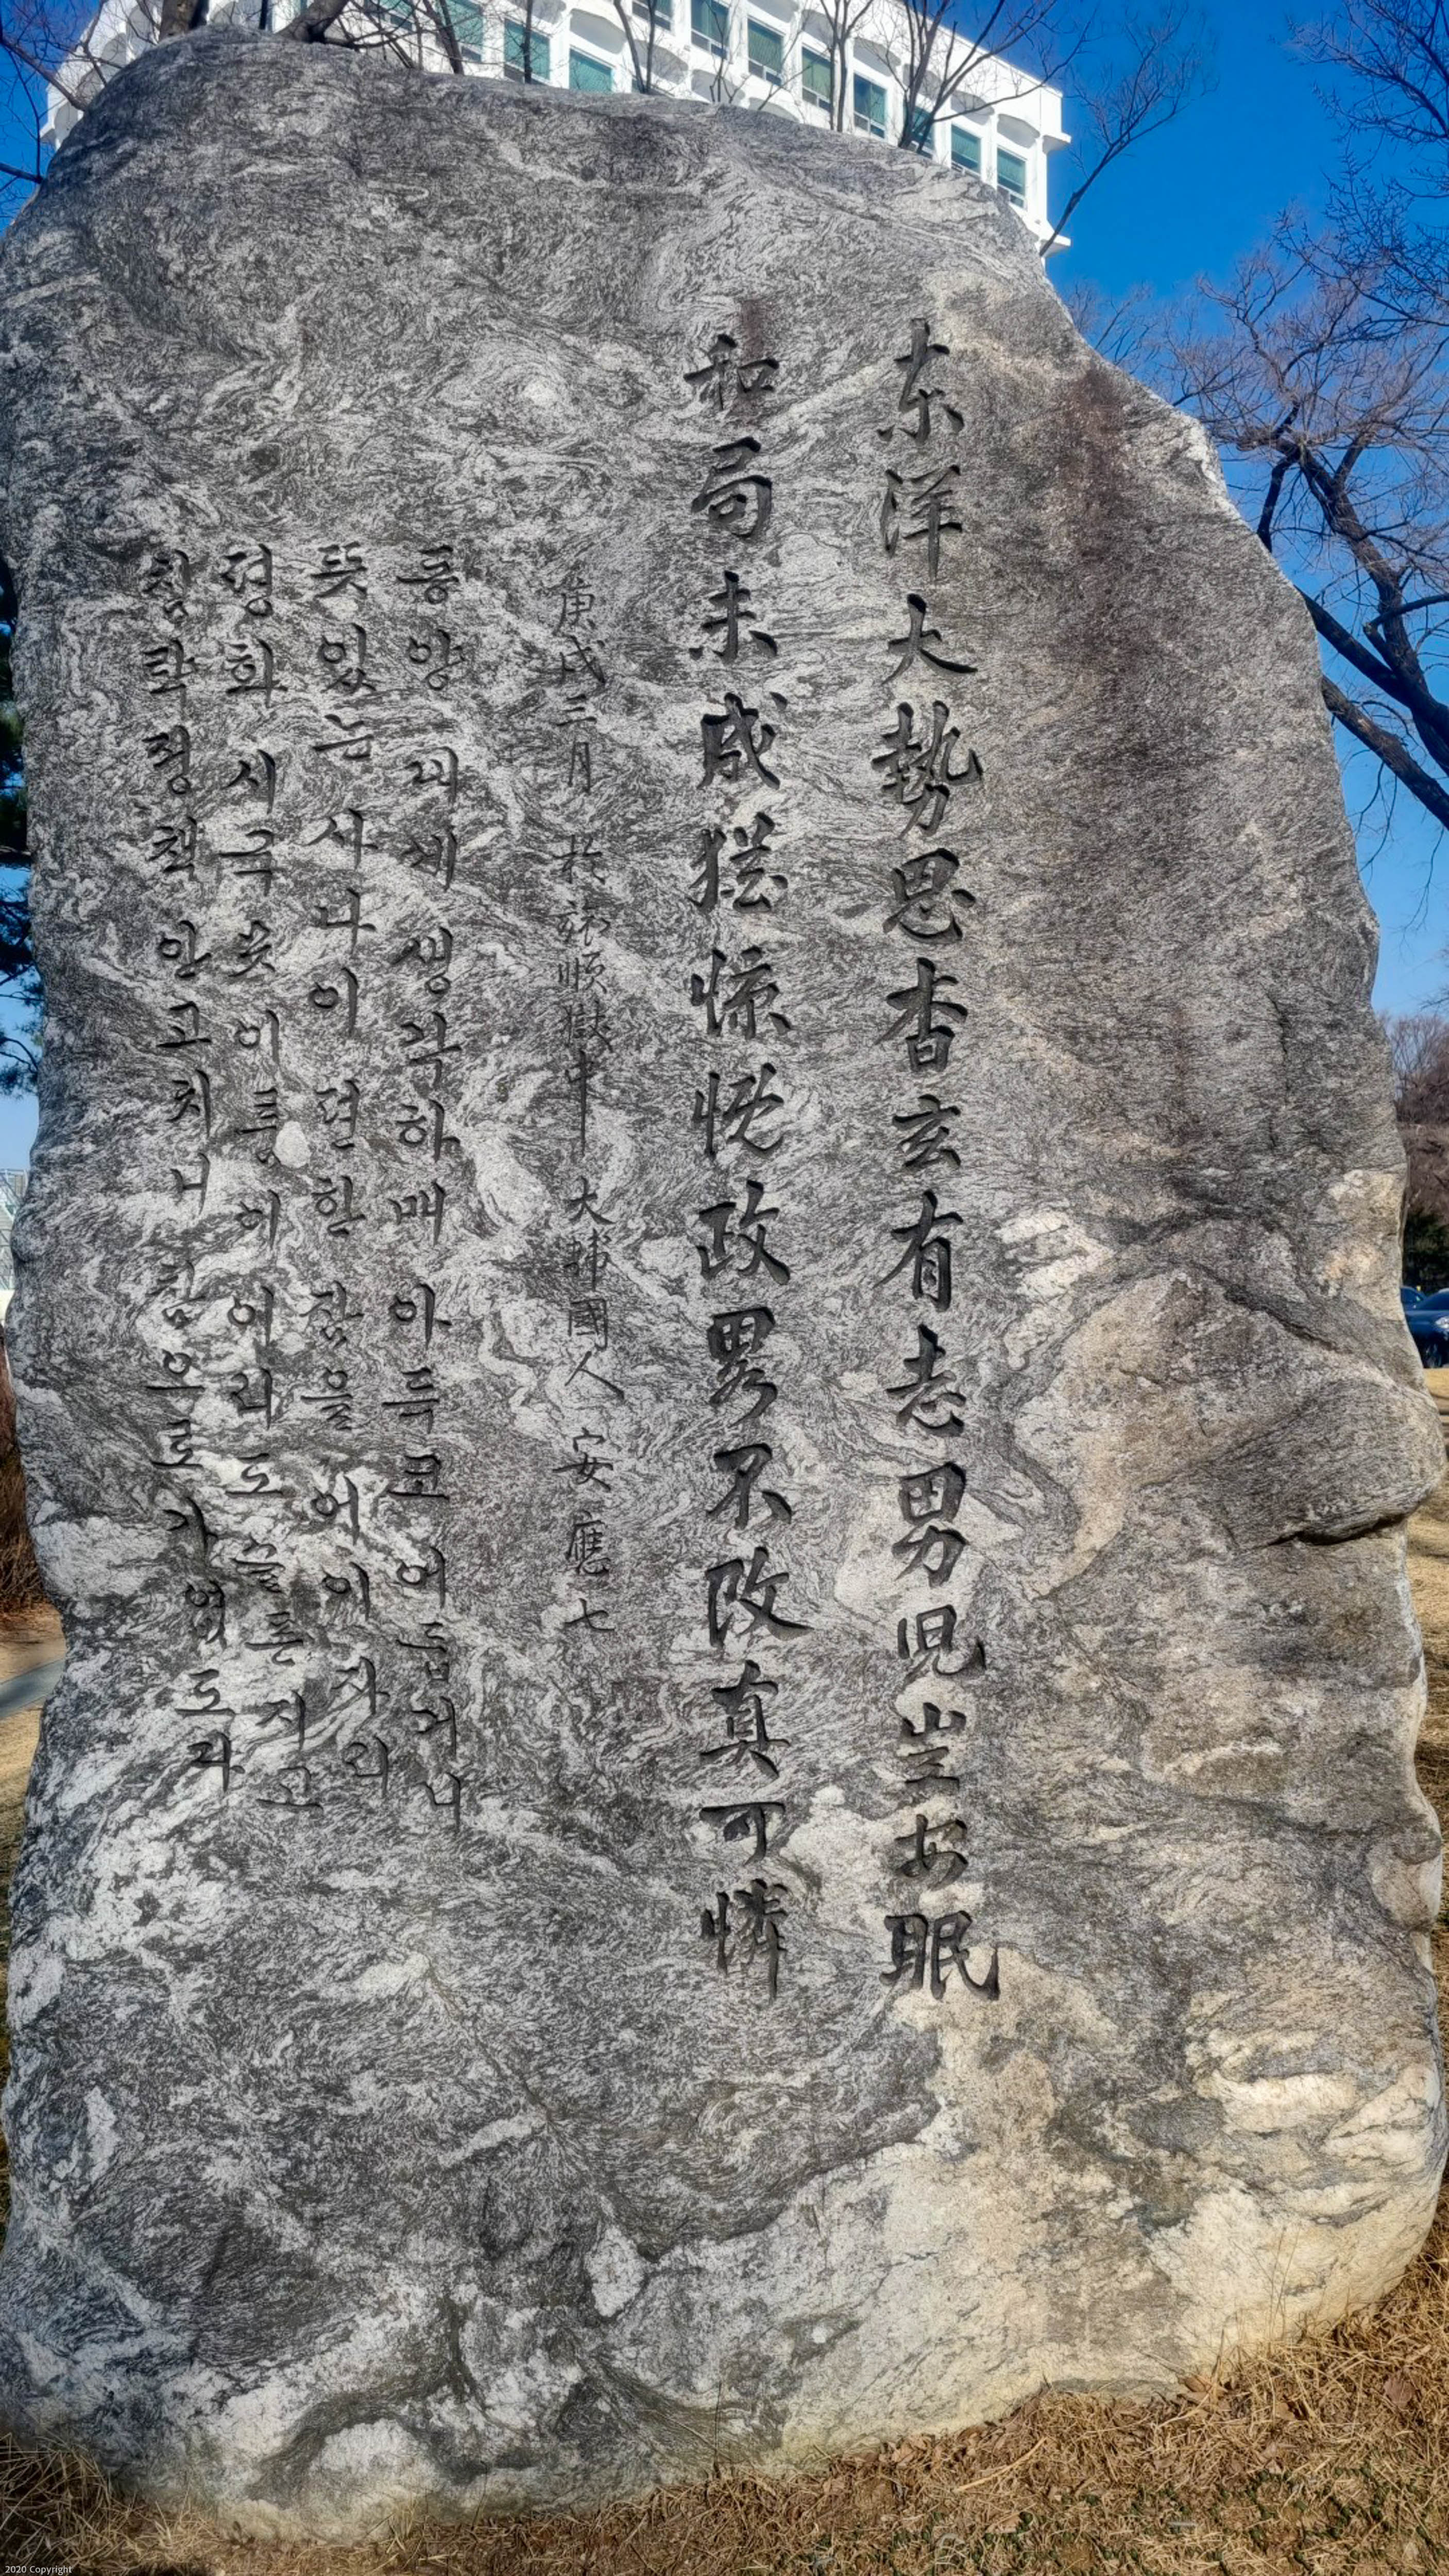 东洋大勢思杳玄有志男児岂安眠
和局未成猶惊慨政畧不改真可憐
庚戌三月 於旅順獄中 大韓國人 安應七
동양대세 생각하매 아득코 어둡거니
뜻있는 사나이 편한 잠을 어이 자리
평화시국 못이룸이 이리도 슬픈지고
침략정책 안고치니 참으로 가엽도다
2020 Copyright